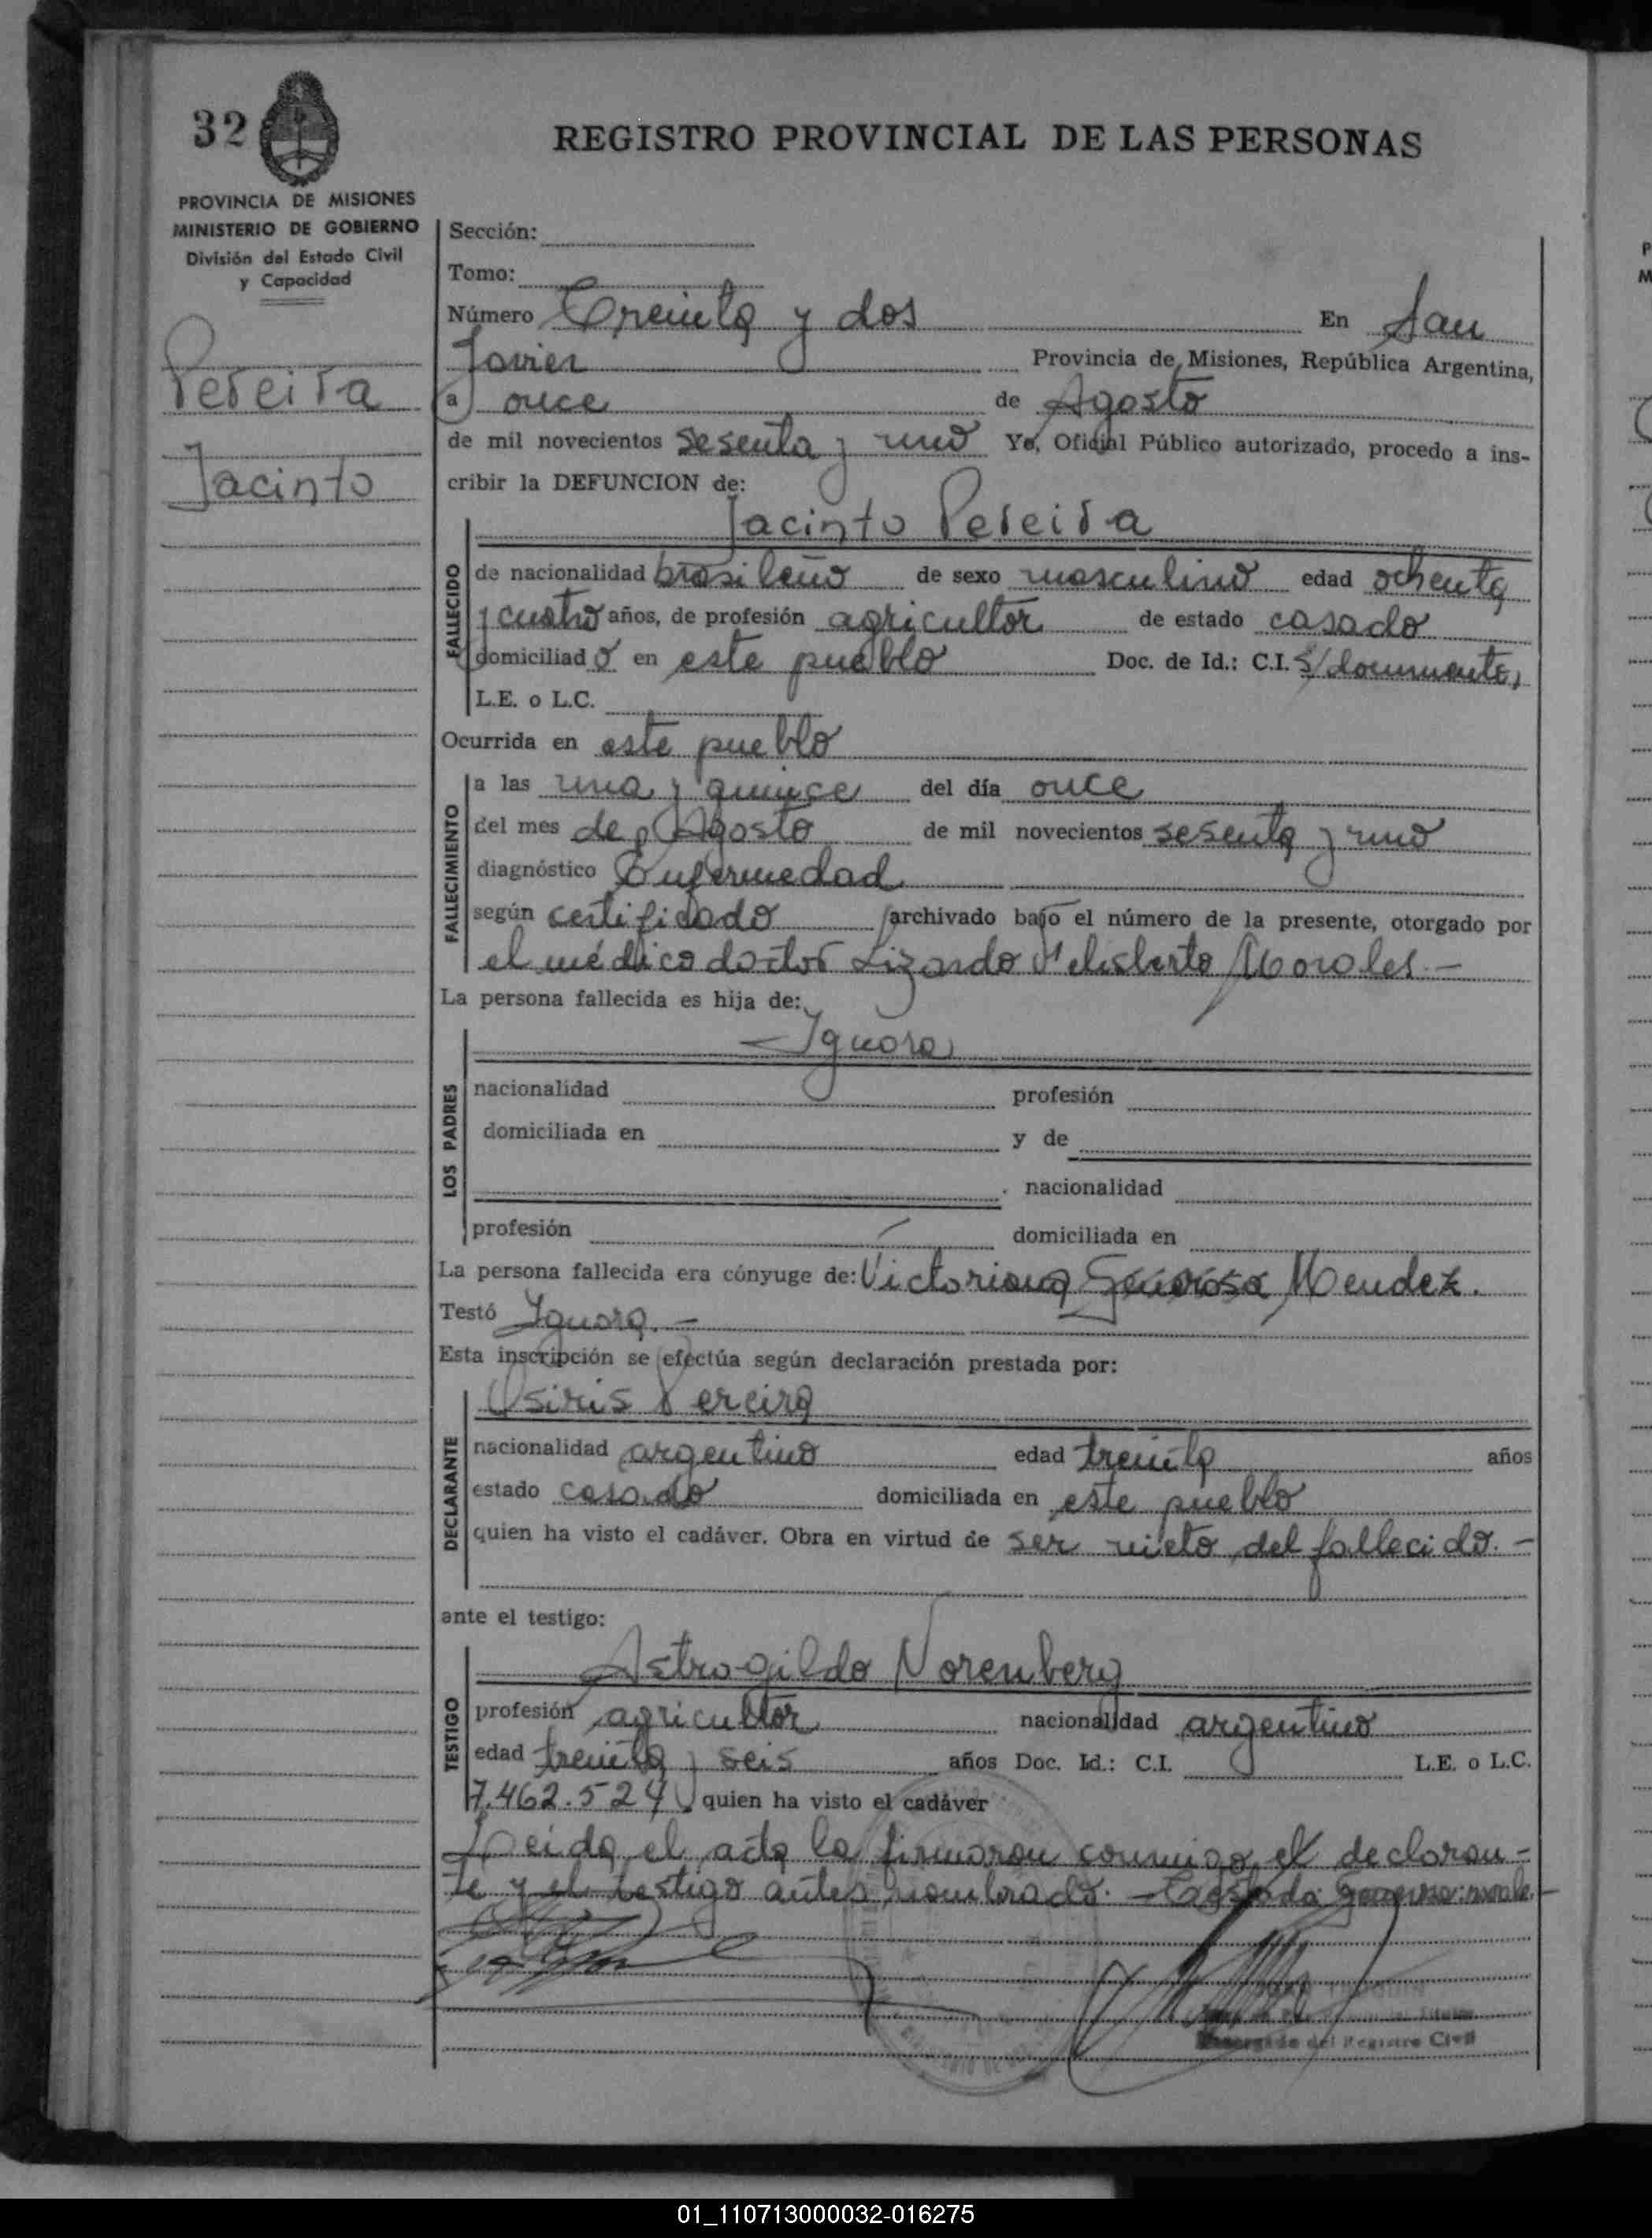 32
REGISTRO PROVINCIAL DE LAS PERSONAS
PROVINCIA DE MISIONES
MINISTERIO DE GOBIERNO
División del Estado Civil
y Capacidad
Pereira
Jacinto
Sección:
Tomo:
Número Treinta y dos En San
Javier Provincia de Misiones, República Argentina,
a once de Agosto
de mil novecientos sesenta y uno Yo, Oficial Público autorizado, procedo a ins-
cribir la DEFUNCION de:
Jacinto Pereira
FALLECIDO
de nacionalidad brasileño de sexo masculino edad ochenta
y cuatro años, de profesión agricultor de estado casado
domiciliado en este pueblo Doc. de Id.: C.I. s/documento,
L.E. o L.C.
Ocurrida en este pueblo
FALLECIMIENTO
a las una y quince del día once
del mes de Agosto de mil novecientos sesenta y uno
diagnóstico Enfermedad
según certificado archivado bajo el número de la presente, otorgado por
el médico doctor Lizardo Felisberto Morales.-
La persona fallecida es hija de:
LOS PADRES
-Ignora
nacionalidad profesión
domiciliada en y de
nacionalidad
profesión domiciliada en
La persona fallecida era cónyuge de: Victoriana Generosa Mendez.
Testó Ignora.-
Esta inscripción se efectúa según declaración prestada por:
DECLARANTE
Osiris Pereira
nacionalidad argentino edad treinta años
estado casado domiciliada en este pueblo
quien ha visto el cadáver. Obra en virtud de ser nieto del fallecido.-
ante el testigo:
TESTIGO
Astrogildo Norenberg
profesión agricultor nacionalidad argentino
edad treinta y seis años Doc. Id.: C.I. L.E. o L.C.
7.462.524 quien ha visto el cadáver
Leida el acta la firmaron conmigo el declaran-
te y el testigo antes nombrado.- Testado: generosa: no vale.-
Encargado del Registro Civil
01_110713000032-016275